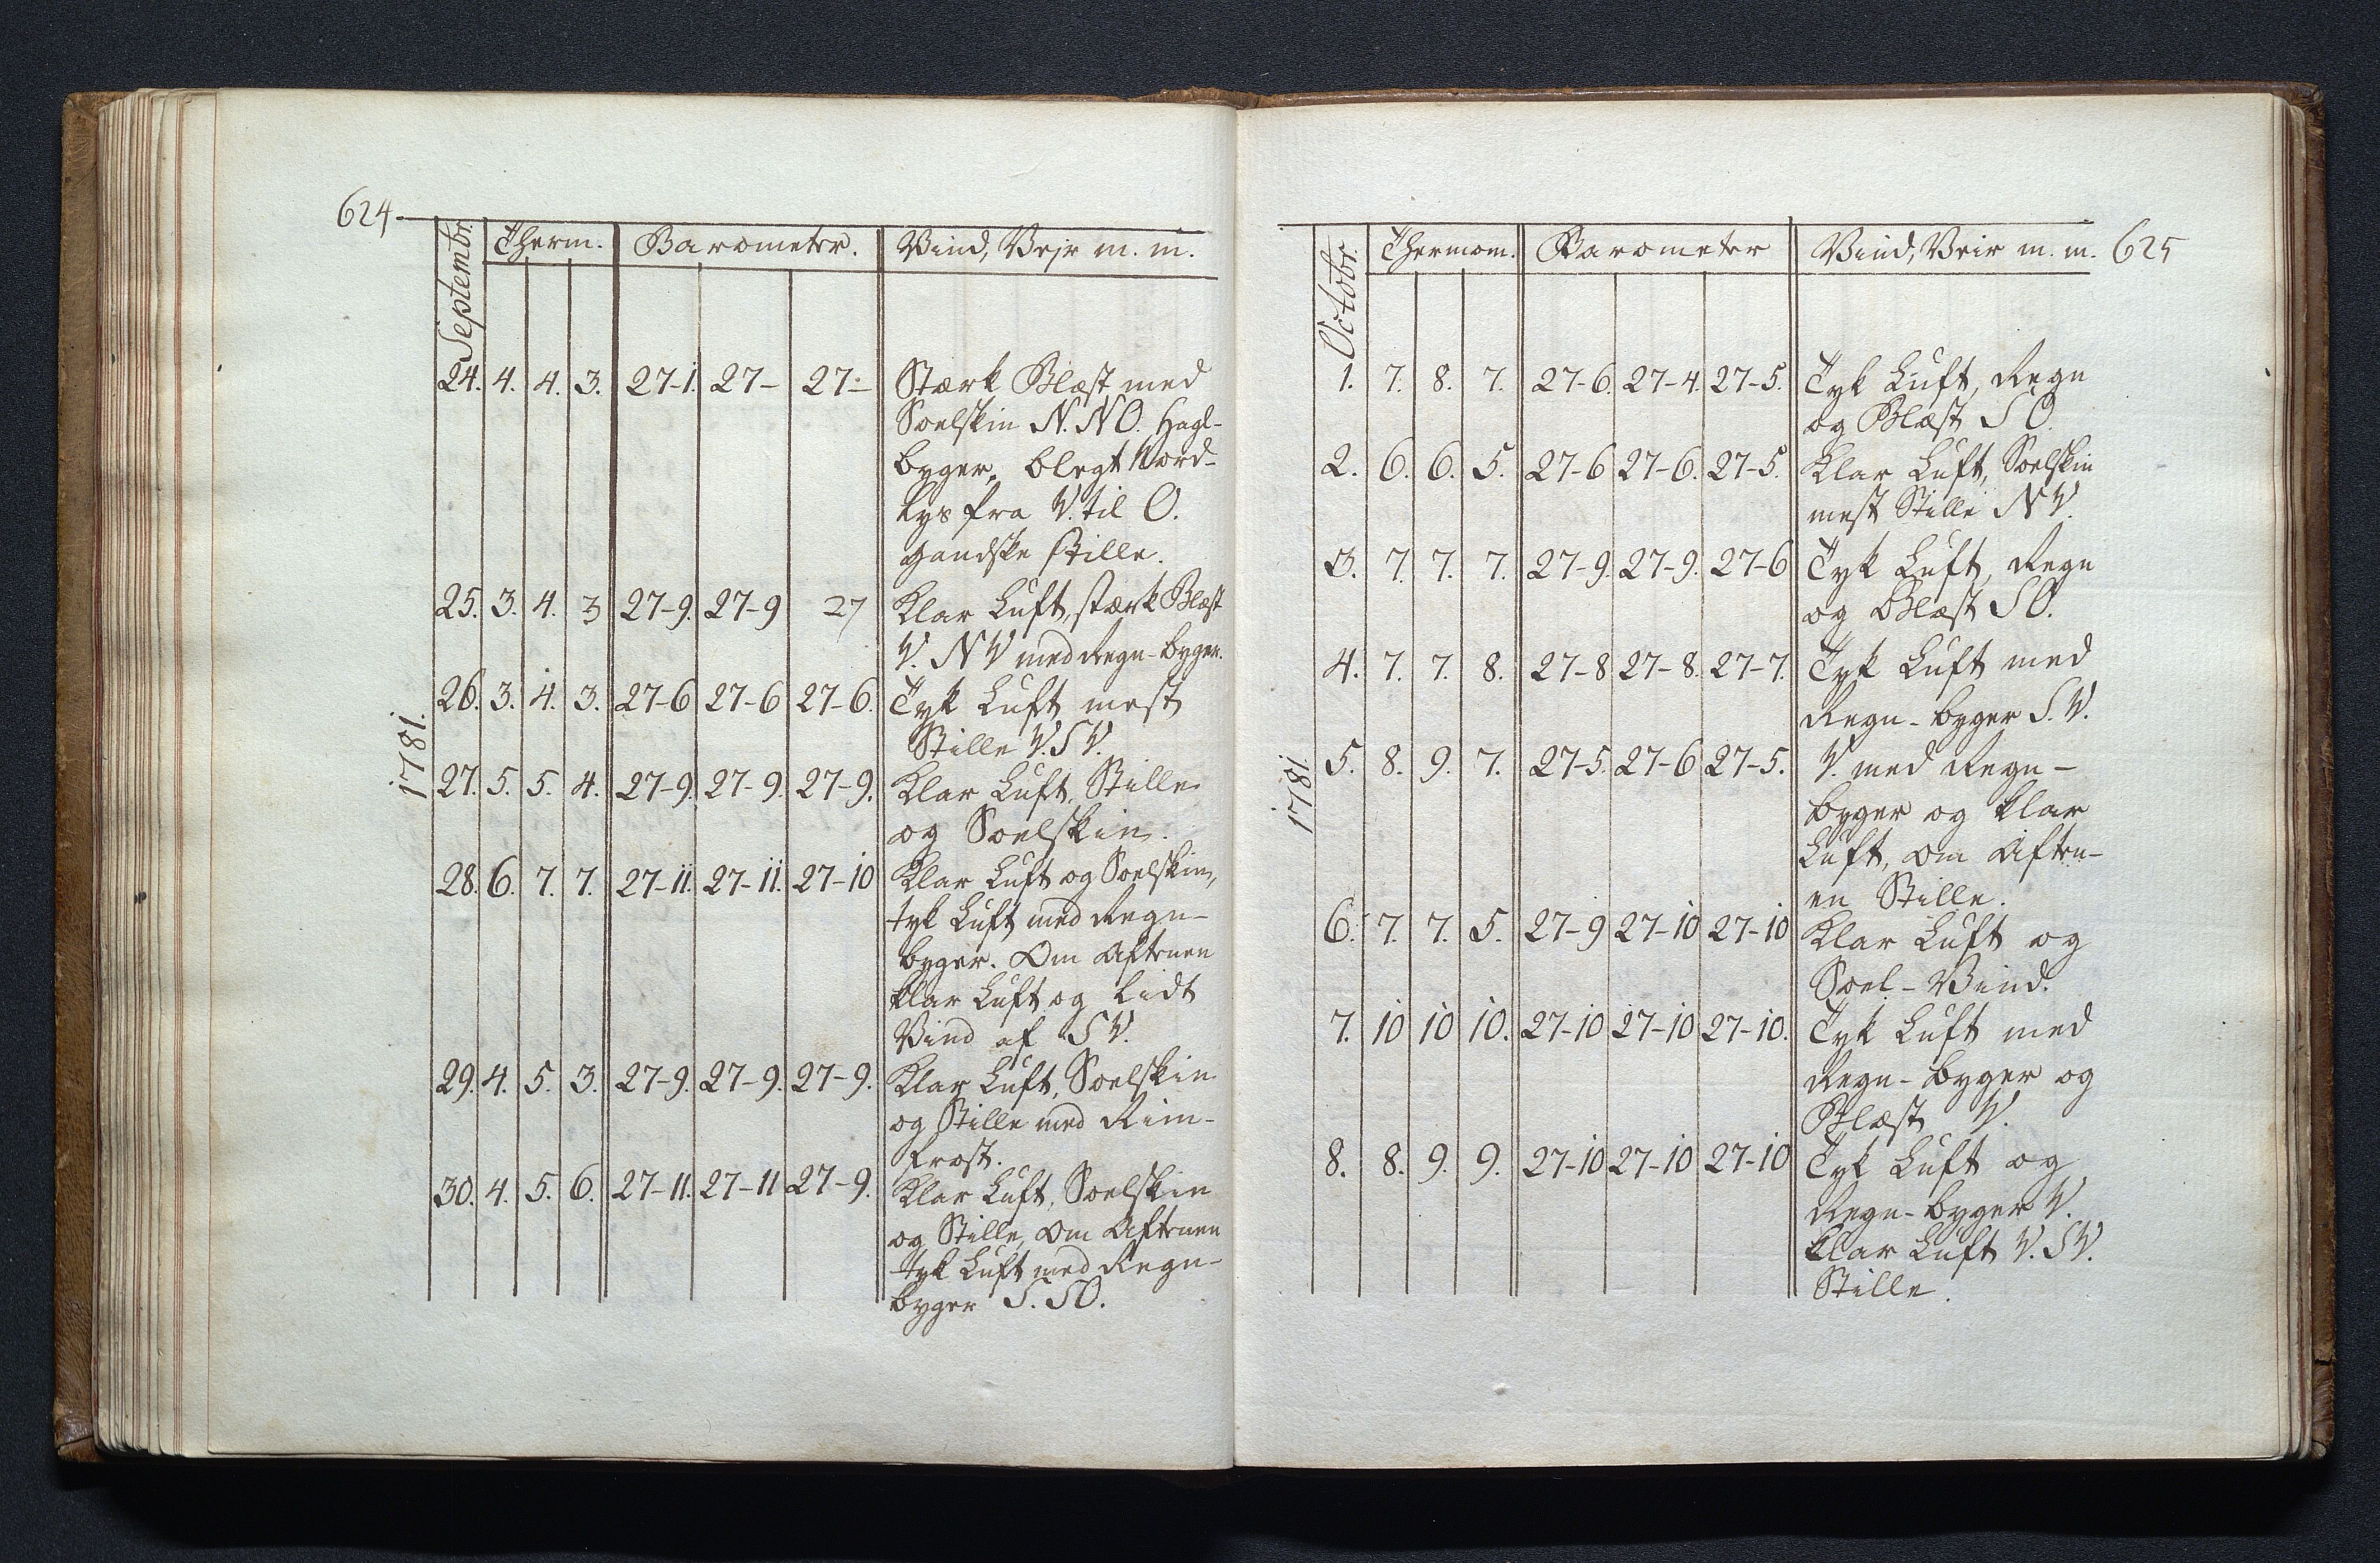 624
Septembr. Therm. Barometer. Vind, Vejr m. m.
24. 4. 4. 3. 27-1. 27- 27- Stærk Blæst med
Soelskin N. NO. Hagl-
byger, blegt Nord-
lys fra V. til O.
gandske stille.
25. 3. 4. 3 27-9. 27-9 27 Klar Luft, stærk Blæst
V. NV med Regn-byger.
26. 3. 4. 3. 27-6 27-6 27-6. Tyk Luft mest
Stille V. SV.
1781.
27. 5. 5. 4. 27-9. 27-9. 27-9. Klar Luft, Stille
og Soelskin.
28. 6. 7. 7. 27-11. 27-11. 27-10 Klar Luft og Soelskin,
tyk Luft med Regn-
byger. Om Aftenen
klar Luft og lidt
Vind af SV.
29. 4. 5. 3. 27-9. 27-9. 27-9. Klar Luft, Soelskin
og Stille med Riim-
frost.
30. 4. 5. 6. 27-11. 27-11 27-9. Klar Luft, Soelskin
og Stille, Om Aftenen
tyk Luft med Regn-
byger S. SO.
625
Octobr. Thermom. Barometer Vind, Veir m. m.
1. 7. 8. 7. 27-6. 27-4. 27-5. Tyk Luft, Regn
og Blæst SO.
2. 6. 6. 5. 27-6 27-6. 27-5. Klar Luft, Soelskin
mest Stille NV.
3. 7. 7. 7. 27-9. 27-9. 27-6 Tyk Luft, Regn
og Blæst SO.
4. 7. 7. 8. 27-8 27-8. 27-7. Tyk Luft med
Regn-byger S. V.
1781.
5. 8. 9. 7. 27-5. 27-6 27-5. V. med Regn-
byger og klar
Luft, om Aften-
en Stille.
6. 7. 7. 5. 27-9 27-10 27-10 Klar Luft og
Soel-Vind.
7. 10 10 10. 27-10 27-10 27-10. Tyk Luft med
Regn-byger og
Blæst V.
8. 8. 9. 9. 27-10 27-10 27-10 Tyk Luft og
Regn-byger V.
klar Luft V. SV.
Stille.